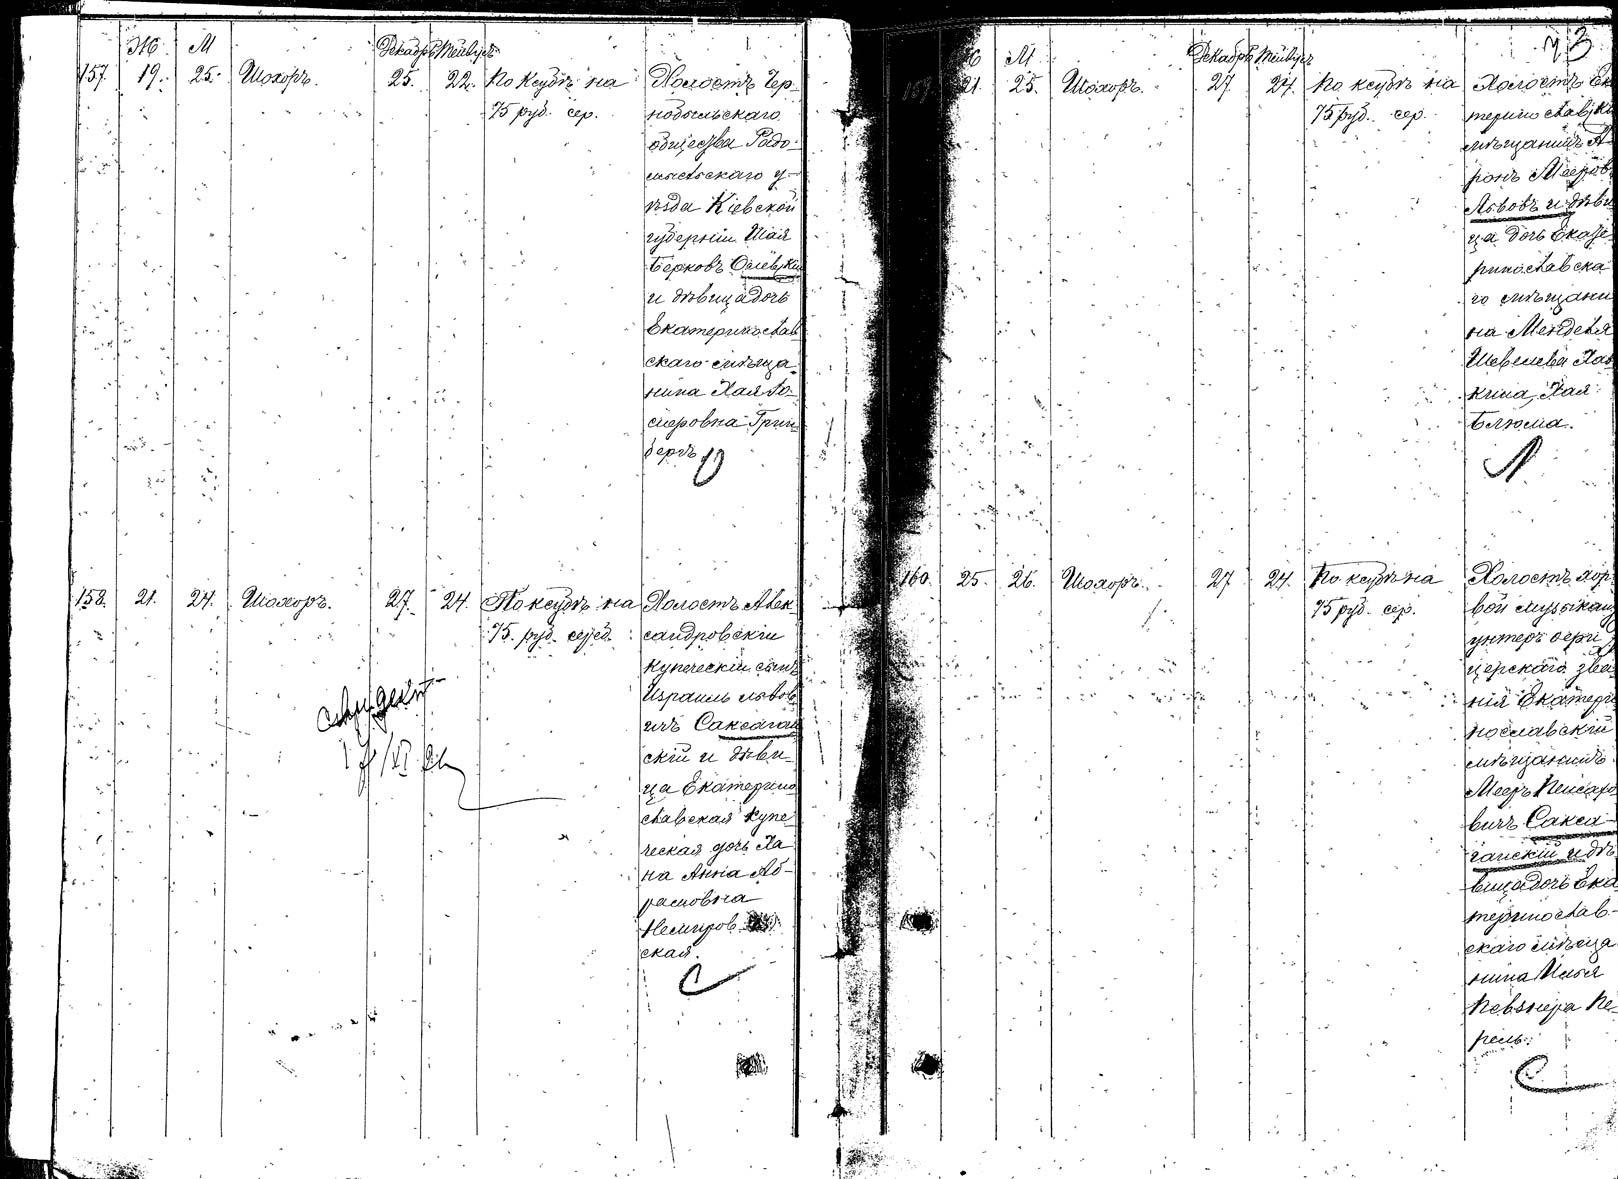 Ж. М Декабръ Тейвусъ
157 19. 25. Шохоръ. 25. 22. По ксубѣ на
75 руб. сер.
Холостъ Чер-
нобыльскаго
общества Радо-
мысльскаго у-
ѣзда Кіевской
губерніи Шая
Берковъ
и дѣвица дочь
Екатеринослав
скаго мѣща-
нина Хая
Грин-
бергъ
158. 21. 24. Шохоръ. 27. 24. По ксубѣ на
75. руб. сереб.
Холостъ Алек-
сандровскій
купеческій сынъ
Израиль Львов-
ичъ Саксаган
скій и дѣви-
ца Екатерино
славская купе-
ческая дочь Ха
на Анна Аб-
рамовна
Немиров
ская.
73
М Декабръ Тейвусъ
159. 21. 25. Шохоръ. 27 24. По ксубѣ на
75 руб. сер.
Холостъ Ека
теринославскі
мѣщанинъ А
ронъ Мееров
Львовъ и дѣви
ца дочь Екате
ринославска
го мѣщани
на Менделя
Шевелева Хав
кина, Хая
Блюма.
160. 25. 26. Шохоръ. 27 24. По ксубѣ на
75 руб. сер.
Холостъ хор
вой музыкан
унтеръ офи
церскаго зва
нія Екатери
нославскій
мѣщанинъ
Мееръ Пейсахо
вичъ Сакса-
ганскій и дѣ
вица дочь Ека
теринослав-
скаго мѣща
нина Илья
Певзнера Пе-
рель.